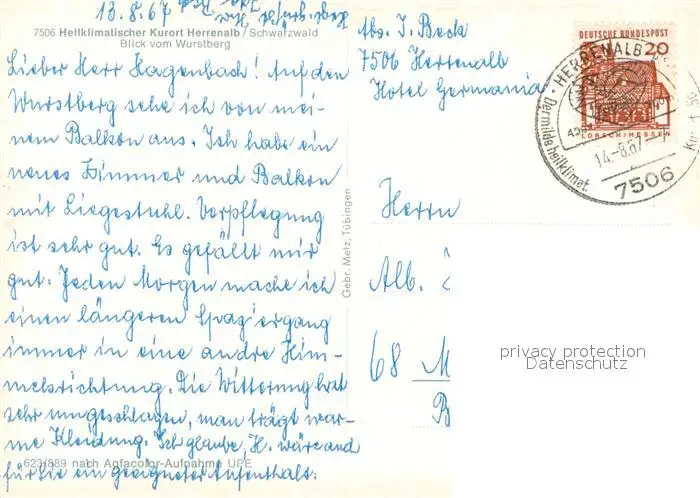 13.8.67
7506 Heilklimatischer Kurort Herrenalb / Schwarzwald
Blick vom Wurstberg
Lieber Herr Hagenbach! Auf den
Wurstberg sehe ich von mei-
nem Balkon aus. Ich habe ein
neues Zimmer und Balkon
mit Liegestuhl. Verpflegung
ist sehr gut. Es gefällt mir
gut. Jeden Morgen mache ich
einen längeren Spaziergang
immer in eine andre Him-
melsrichtung. Die Witterung hat
sehr umgeschlagen, man trägt war-
me Kleidung. Ich glaube, H. wäre and
für Sie ein geeigneter Aufenthalt.
623/889 nach Agfacolor-Aufnahme UPE
Gebr. Metz, Tübingen
Abs. J. Beck
7506 Herrenalb
Hotel Germania
DEUTSCHE BUNDESPOST
20
LORSCH/HESSEN
HERRENALB
Der milde heilklimat.
14.-8.67
7506
Herrn
Alb.
68 M
B
privacy protection
Datenschutz